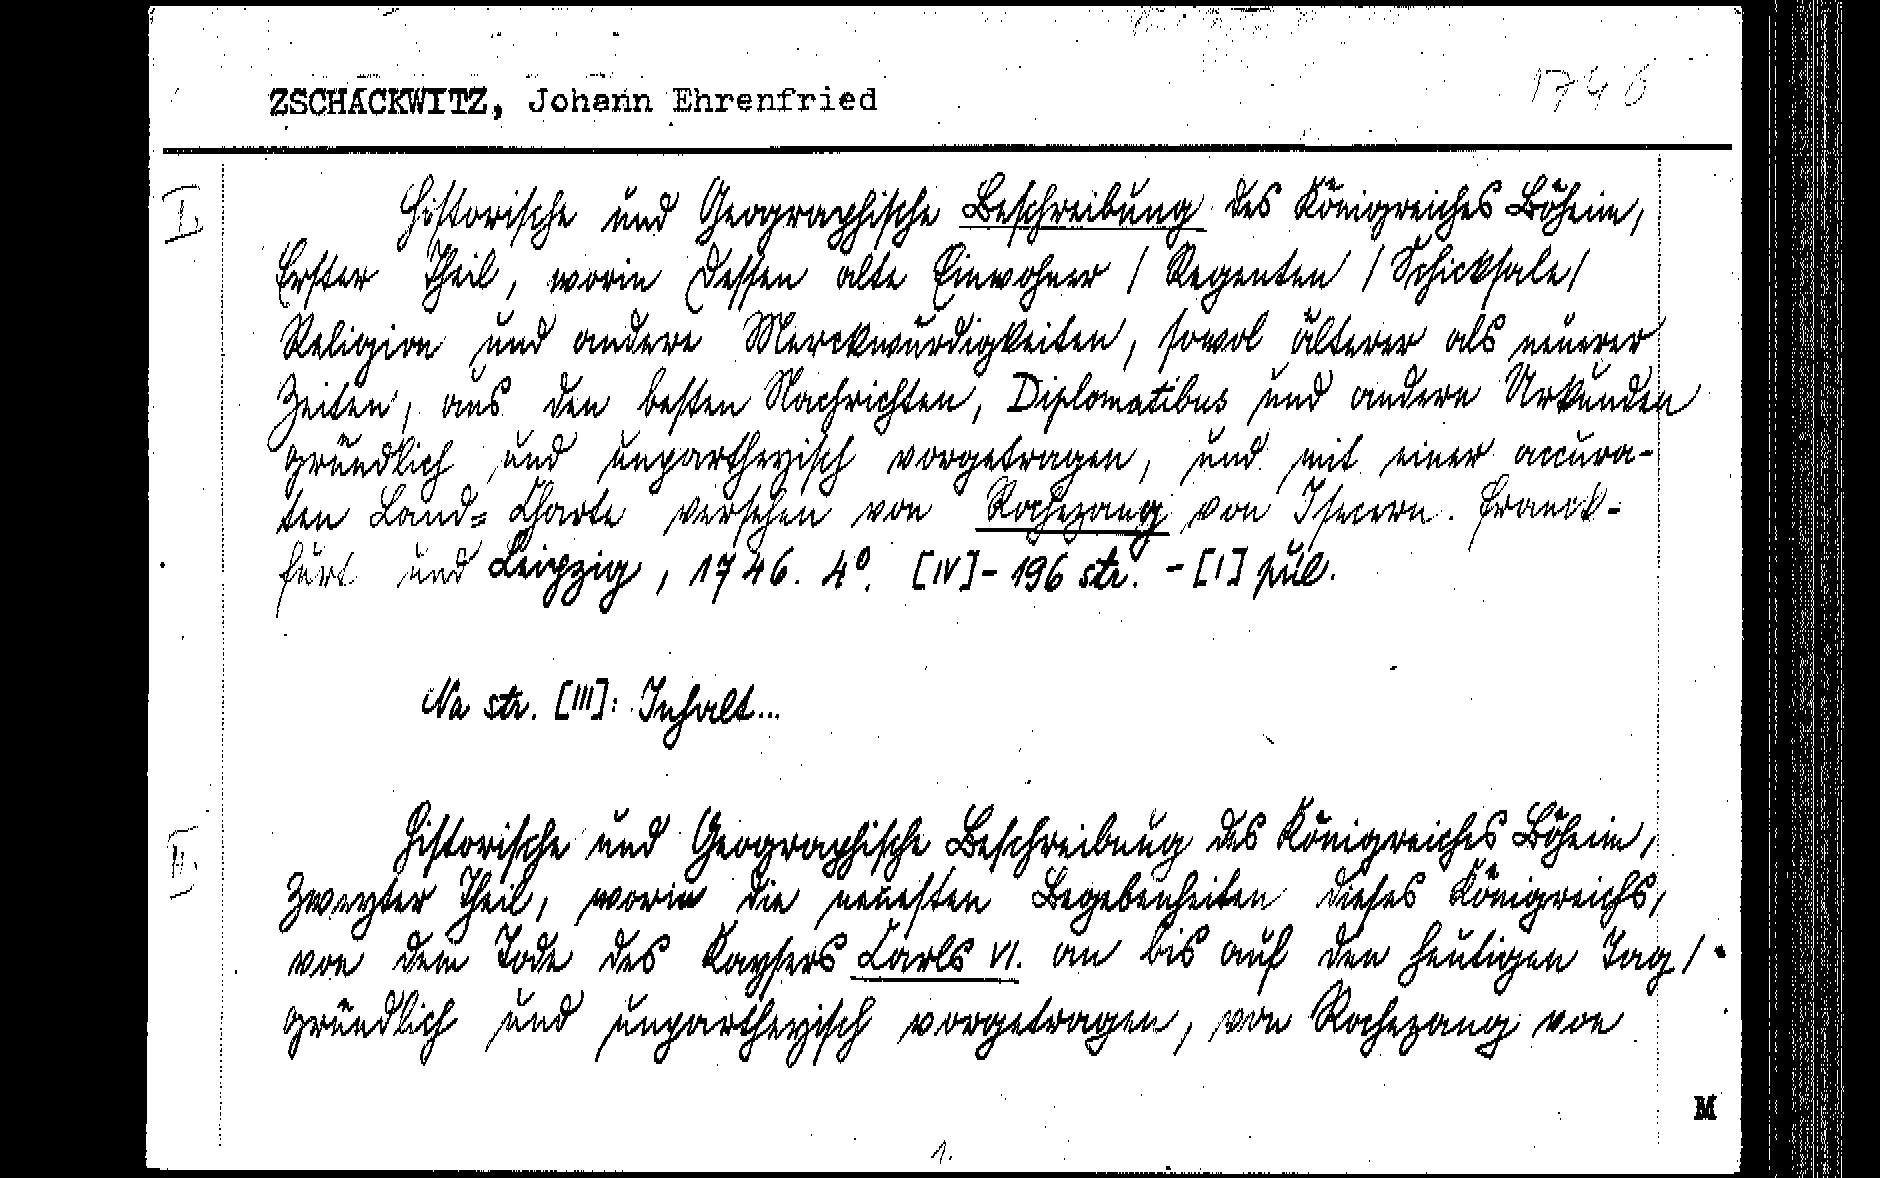 ZSCHACKWITZ, Johann Ehrenfried
1746
I.
Historische und Geographische Beschreibung des Königreiches Böheim,
Erster Theil, worin dessen alte Einwohner / Regenten / Schicksale /
Religion und andere Merckwürdigkeiten, sowol älterer als neuerer
Zeiten, aus den besten Nachrichten, Diplomatibus und andern Urkunden
gründlich und unpartheyisch vorgetragen, und mit einer accura-
ten Land= Charte versehen von Rochezang von Isecern. Franck-
furt und Leipzig, 1746. 4°. [IV] - 196 str. - [I] přil.
Na str. [III]: Inhalt...
II.
Historische und Geographische Beschreibung des Königreiches Böheim,
Zweyter Theil, worin die neuesten Begebenheiten dieses Königreichs,
von dem Tode des Kaysers Carls VI. an bis auf den heutigen Tag /
gründlich und unpartheyisch vorgetragen, von Rochezang von
M
1.